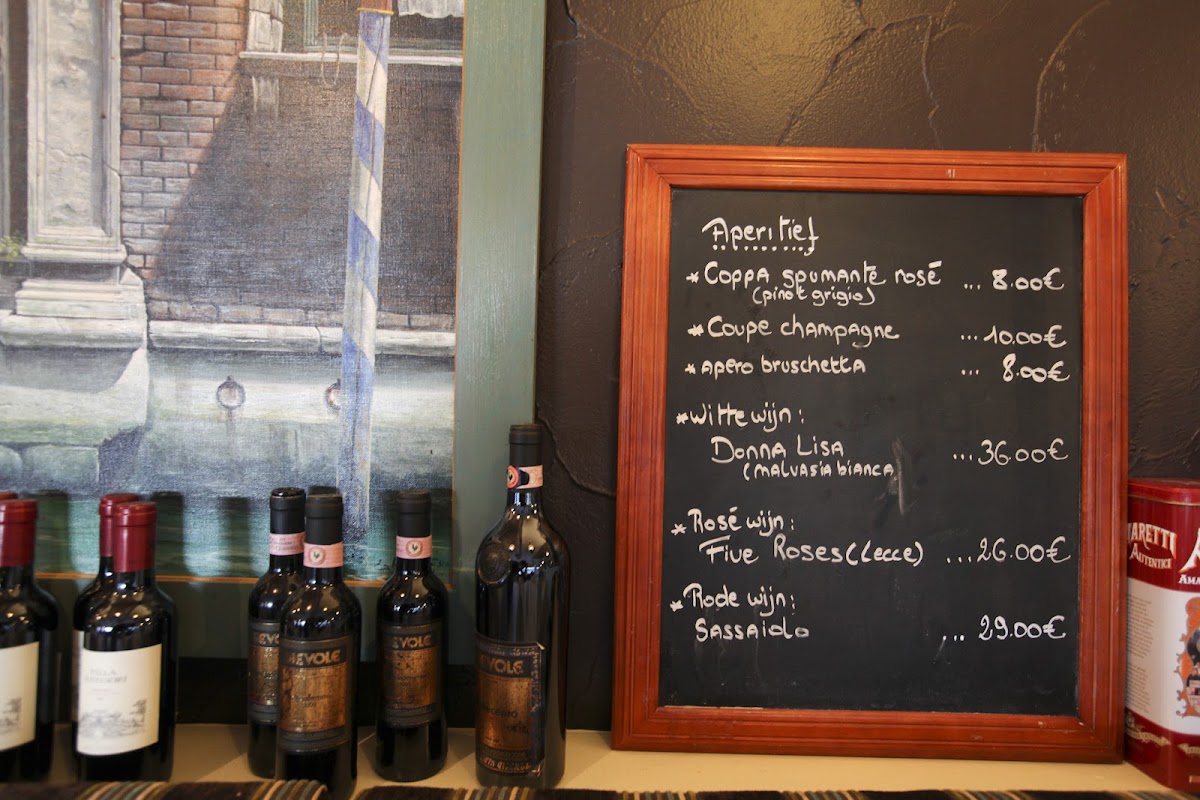 Aperitief
* Coppa spumante rosé ... 8.00€
(pinot grigio)
* Coupe champagne ... 10.00€
* apero bruschetta ... 8.00€
* Witte wijn:
Donna Lisa ... 36.00€
(malvasia bianca
* Rosé wijn:
Five Roses (Lecce) ... 26.00€
* Rode wijn:
Sassaiolo ... 29.00€
VILLA
IEVOLE
EVOLE
EVOLE
ARETTI
AUTENTICI
A
AMA